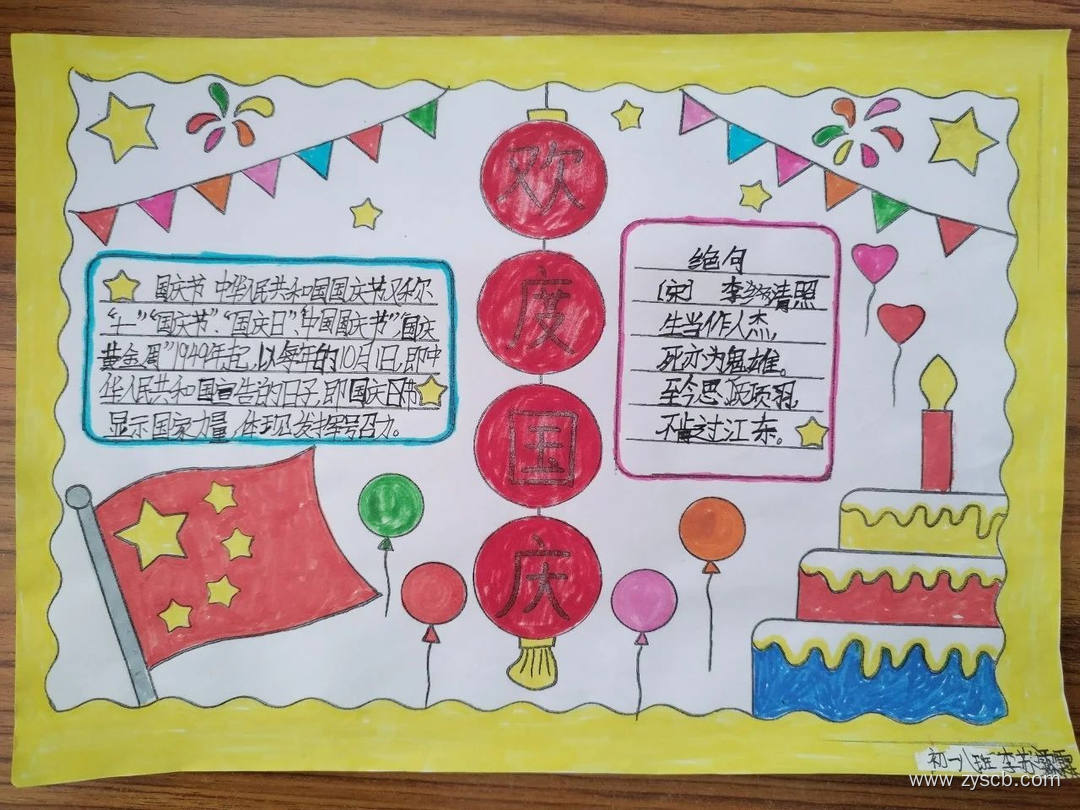 欢
度
国
庆
国庆节 中华人民共和国国庆节又称
"十一""国庆节"、"国庆日""中国国庆节""国庆
黄金周"1949年起,以每年的10月1日,即中
华人民共和国宣告的日子,即国庆日节
显示国家力量 体现 发挥号召力。
绝句
[宋] 李 清照
生当作人杰,
死亦为鬼雄。
至今思 项羽,
不肯过江东。
初一八班 李
www.zyscb.com